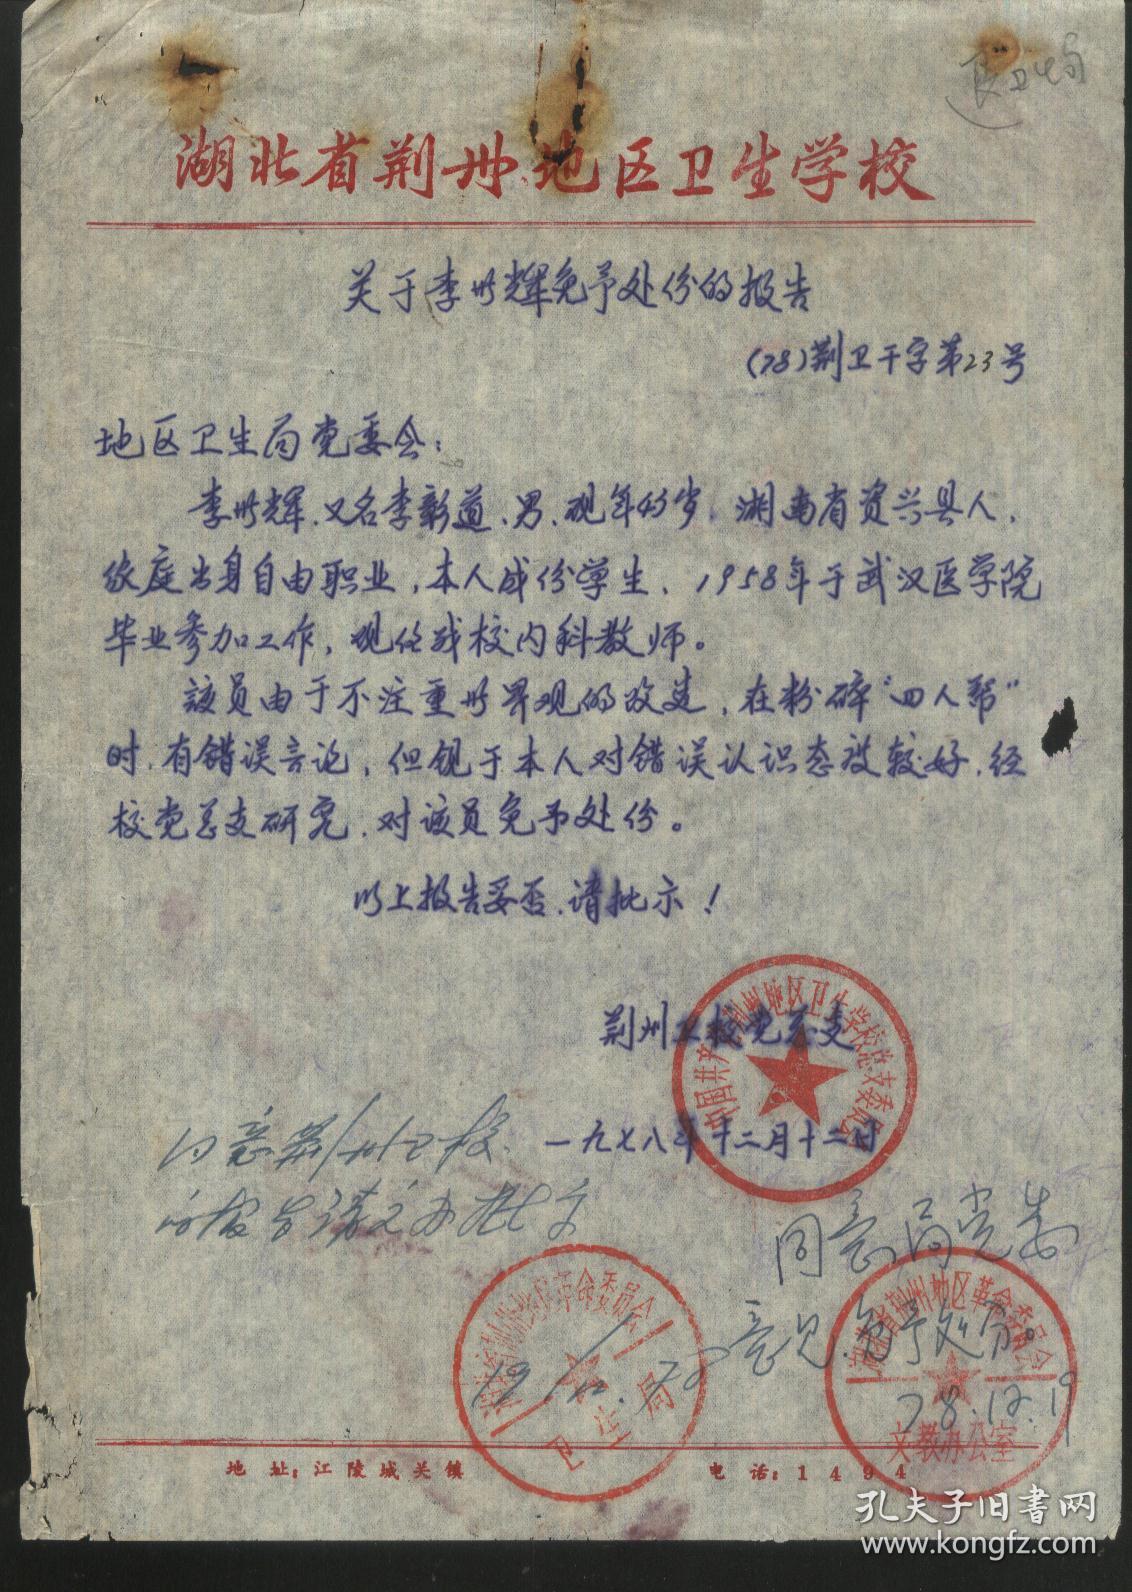 退卫生局
湖北省荆州地区卫生学校
关于李世辉免予处份的报告
(78)荆卫干字第23号
地区卫生局党委会：
李世辉、又名李新道、男、现年43岁、湖南省资兴县人、
家庭出身自由职业，本人成份学生、1958年于武汉医学院
毕业参加工作，现任我校内科教师。
该员由于不注重世界观的改造，在粉碎"四人帮"
时、有错误言论，但觇于本人对错误认识态度较好、经
校党总支研究、对该员免予处份。
以上报告妥否、请批示！
荆州卫校党总支
中国共产党荆州地区卫生学校总支委员会
一九七八年十二月十二日
同意荆州卫校
的报告请文办批示
19/12.
湖北省荆州地区革命委员会
卫生局
同意局党委
意见、免予处分。
78.12.19
湖北省荆州地区革命委员会
文教办公室
地 址：江陵城关镇
电 话：1494
孔夫子旧书网
www.kongfz.com